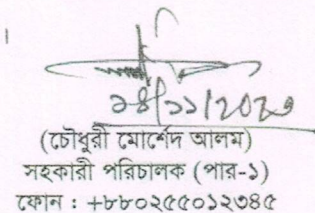 (চৌধুরী মোর্শেদ আলম)
সহকারী পরিচালক (পার-১)
ফোন : +৮৮০২৫৫০১২৩৪৫